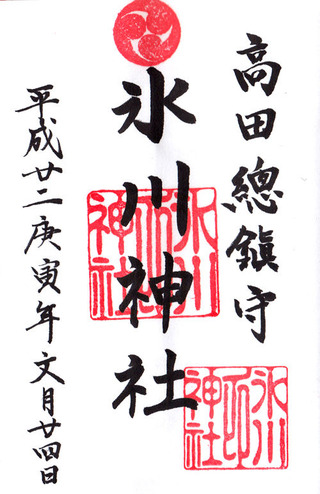 高田總鎮守
氷川神社
平成廿二庚寅年文月廿四日
氷川
神社
氷川
神社